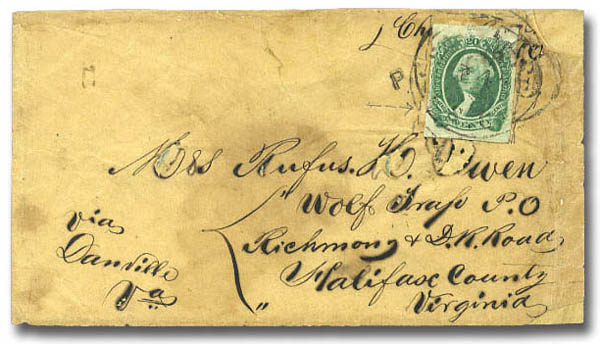 P.
20
TWENTY
Mrs Rufus. K. Owen
Wolf Trap P.O
Richmond & D. R. Road
Halifax County
Virginia
via
Danville
Va